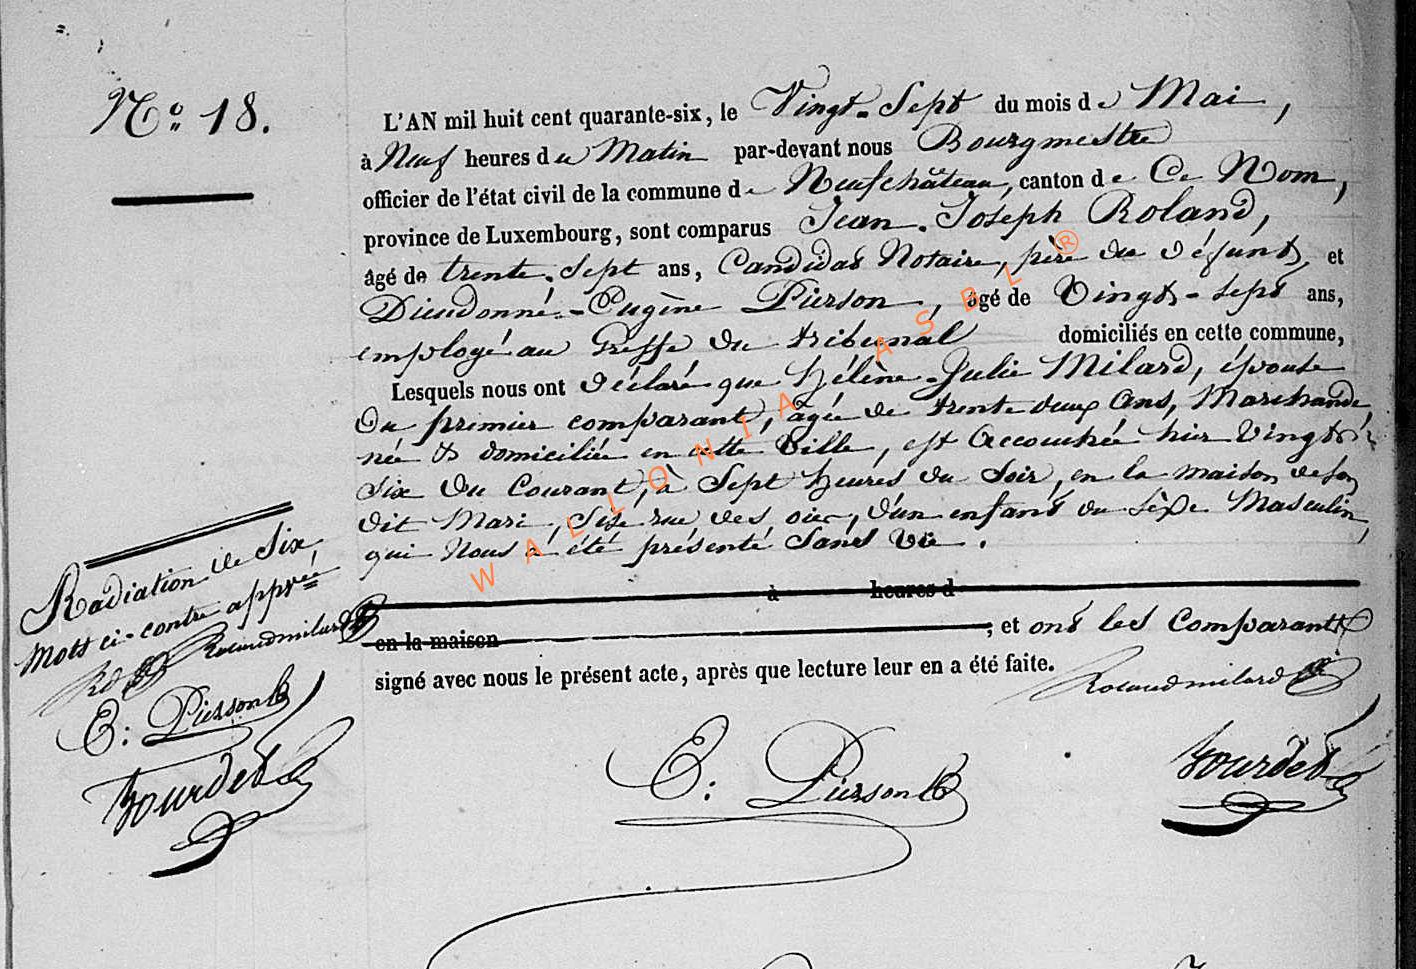 N.o 18.
L'AN mil huit cent quarante-six, le Vingt-Sept du mois de Mai,
à Neuf heures du Matin par-devant nous Bourgmestre
officier de l'état civil de la commune de Neufchâteau, canton de Ce Nom,
province de Luxembourg, sont comparus Jean-Joseph Roland,
âgé de trente-sept ans, Candidat Notaire, père du défunt, et
Dieudonné-Eugène Pierson, âgé de Vingt-sept ans,
employé au Greffe du tribunal domiciliés en cette commune,
Lesquels nous ont déclaré que Hélène-Julie Milard, épouse
du premier comparant, âgée de trente deux ans, Marchande,
née et domiciliée en cette Ville, est accouchée hier Vingt-
six du courant, à Sept heures du Soir, en la maison de son
dit Mari, Sise rue des oies, d'un enfant du sèxe Masculin,
qui Nous a été présenté Sans Vie.
à heures d
en la maison ; et ont les Comparants
signé avec nous le présent acte, après que lecture leur en a été faite.
Rolandmilard
E: Pierson
Bourdet
Radiation de Six
mots ci-contre appvée
Rd Rolandmilard
E: Pierson
Bourdet
WALLONIA ASBL ®